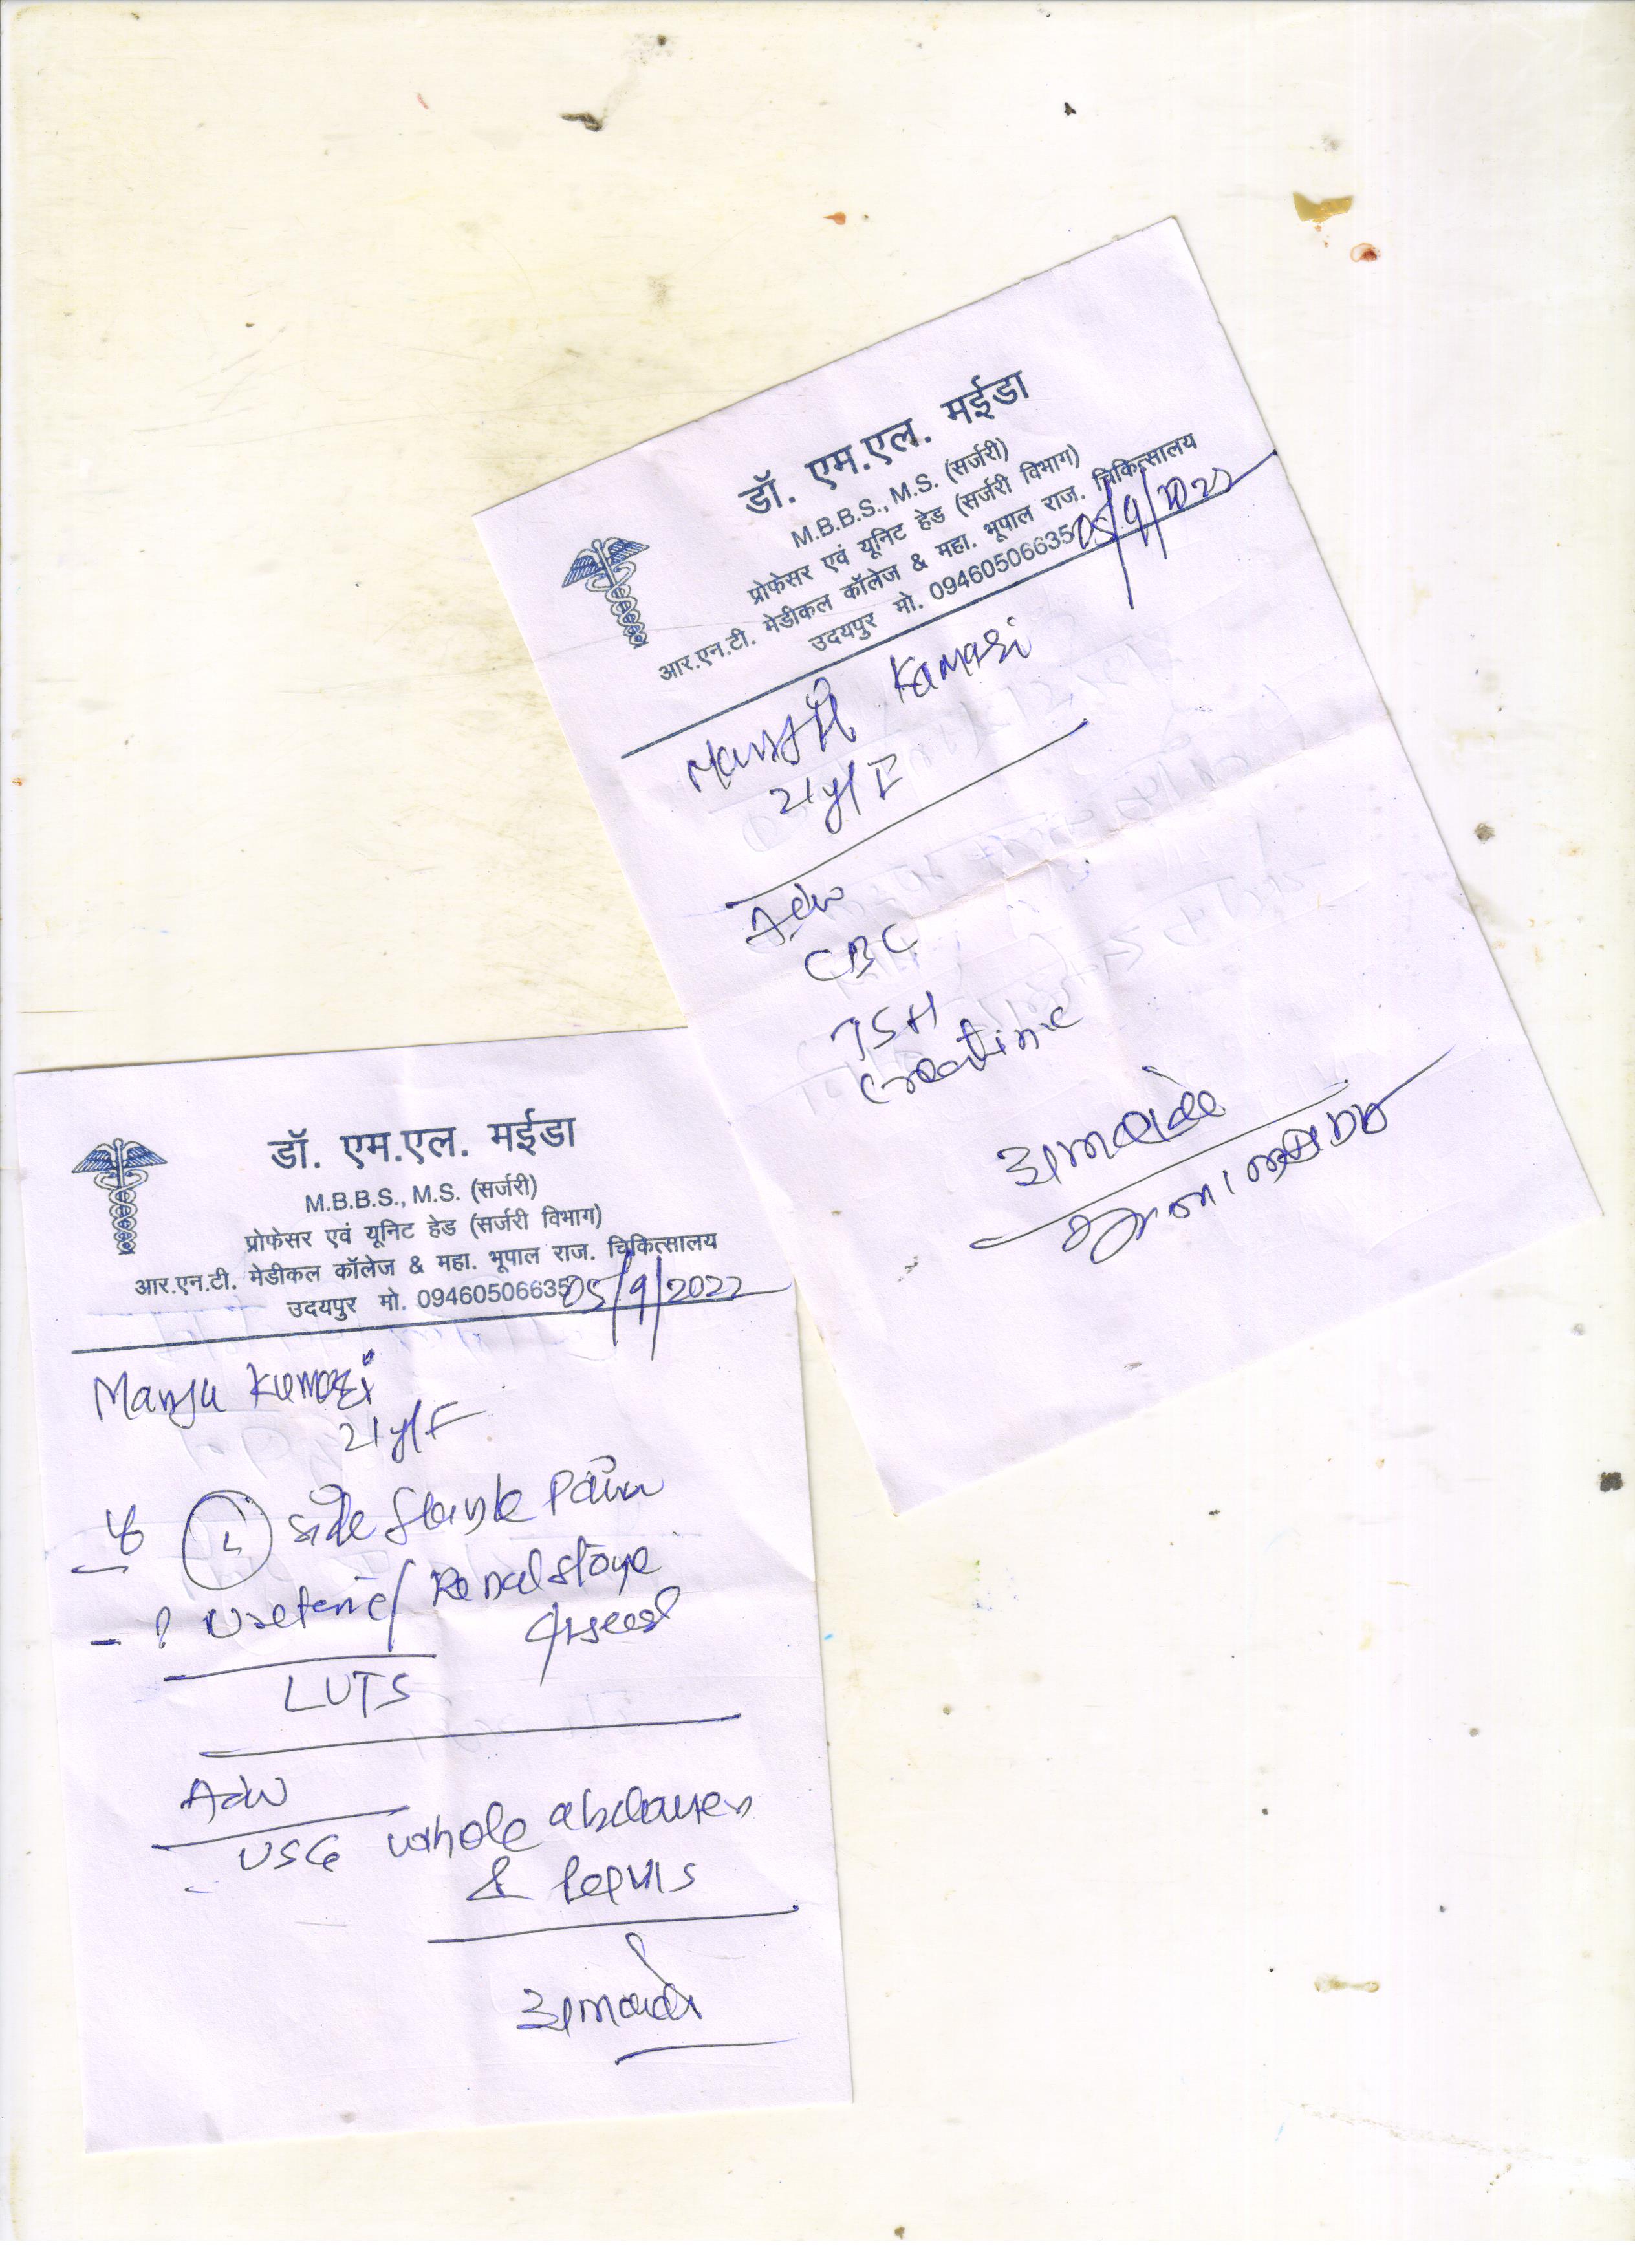 डॉ. एम.एल. मईडा
M.B.B.S., M.S. (सर्जरी)
प्रोफेसर एवं यूनिट हेड (सर्जरी विभाग)
आर.एन.टी. मेडीकल कॉलेज & महा. भूपाल राज. चिकित्सालय
उदयपुर मो. 09460506635 05/9/2022
Kamari
21y/F
Adv
CBC
TSH
Creatinine
डॉ. एम.एल. मईडा
M.B.B.S., M.S. (सर्जरी)
प्रोफेसर एवं यूनिट हेड (सर्जरी विभाग)
आर.एन.टी. मेडीकल कॉलेज & महा. भूपाल राज. चिकित्सालय
उदयपुर मो. 09460506635 05/9/2022
Manju Kumari
21y/F
L side flank Pain
- ? Ureteric/ Renal stone
LUTS
Adv
USG whole abdomen
& Pelvis